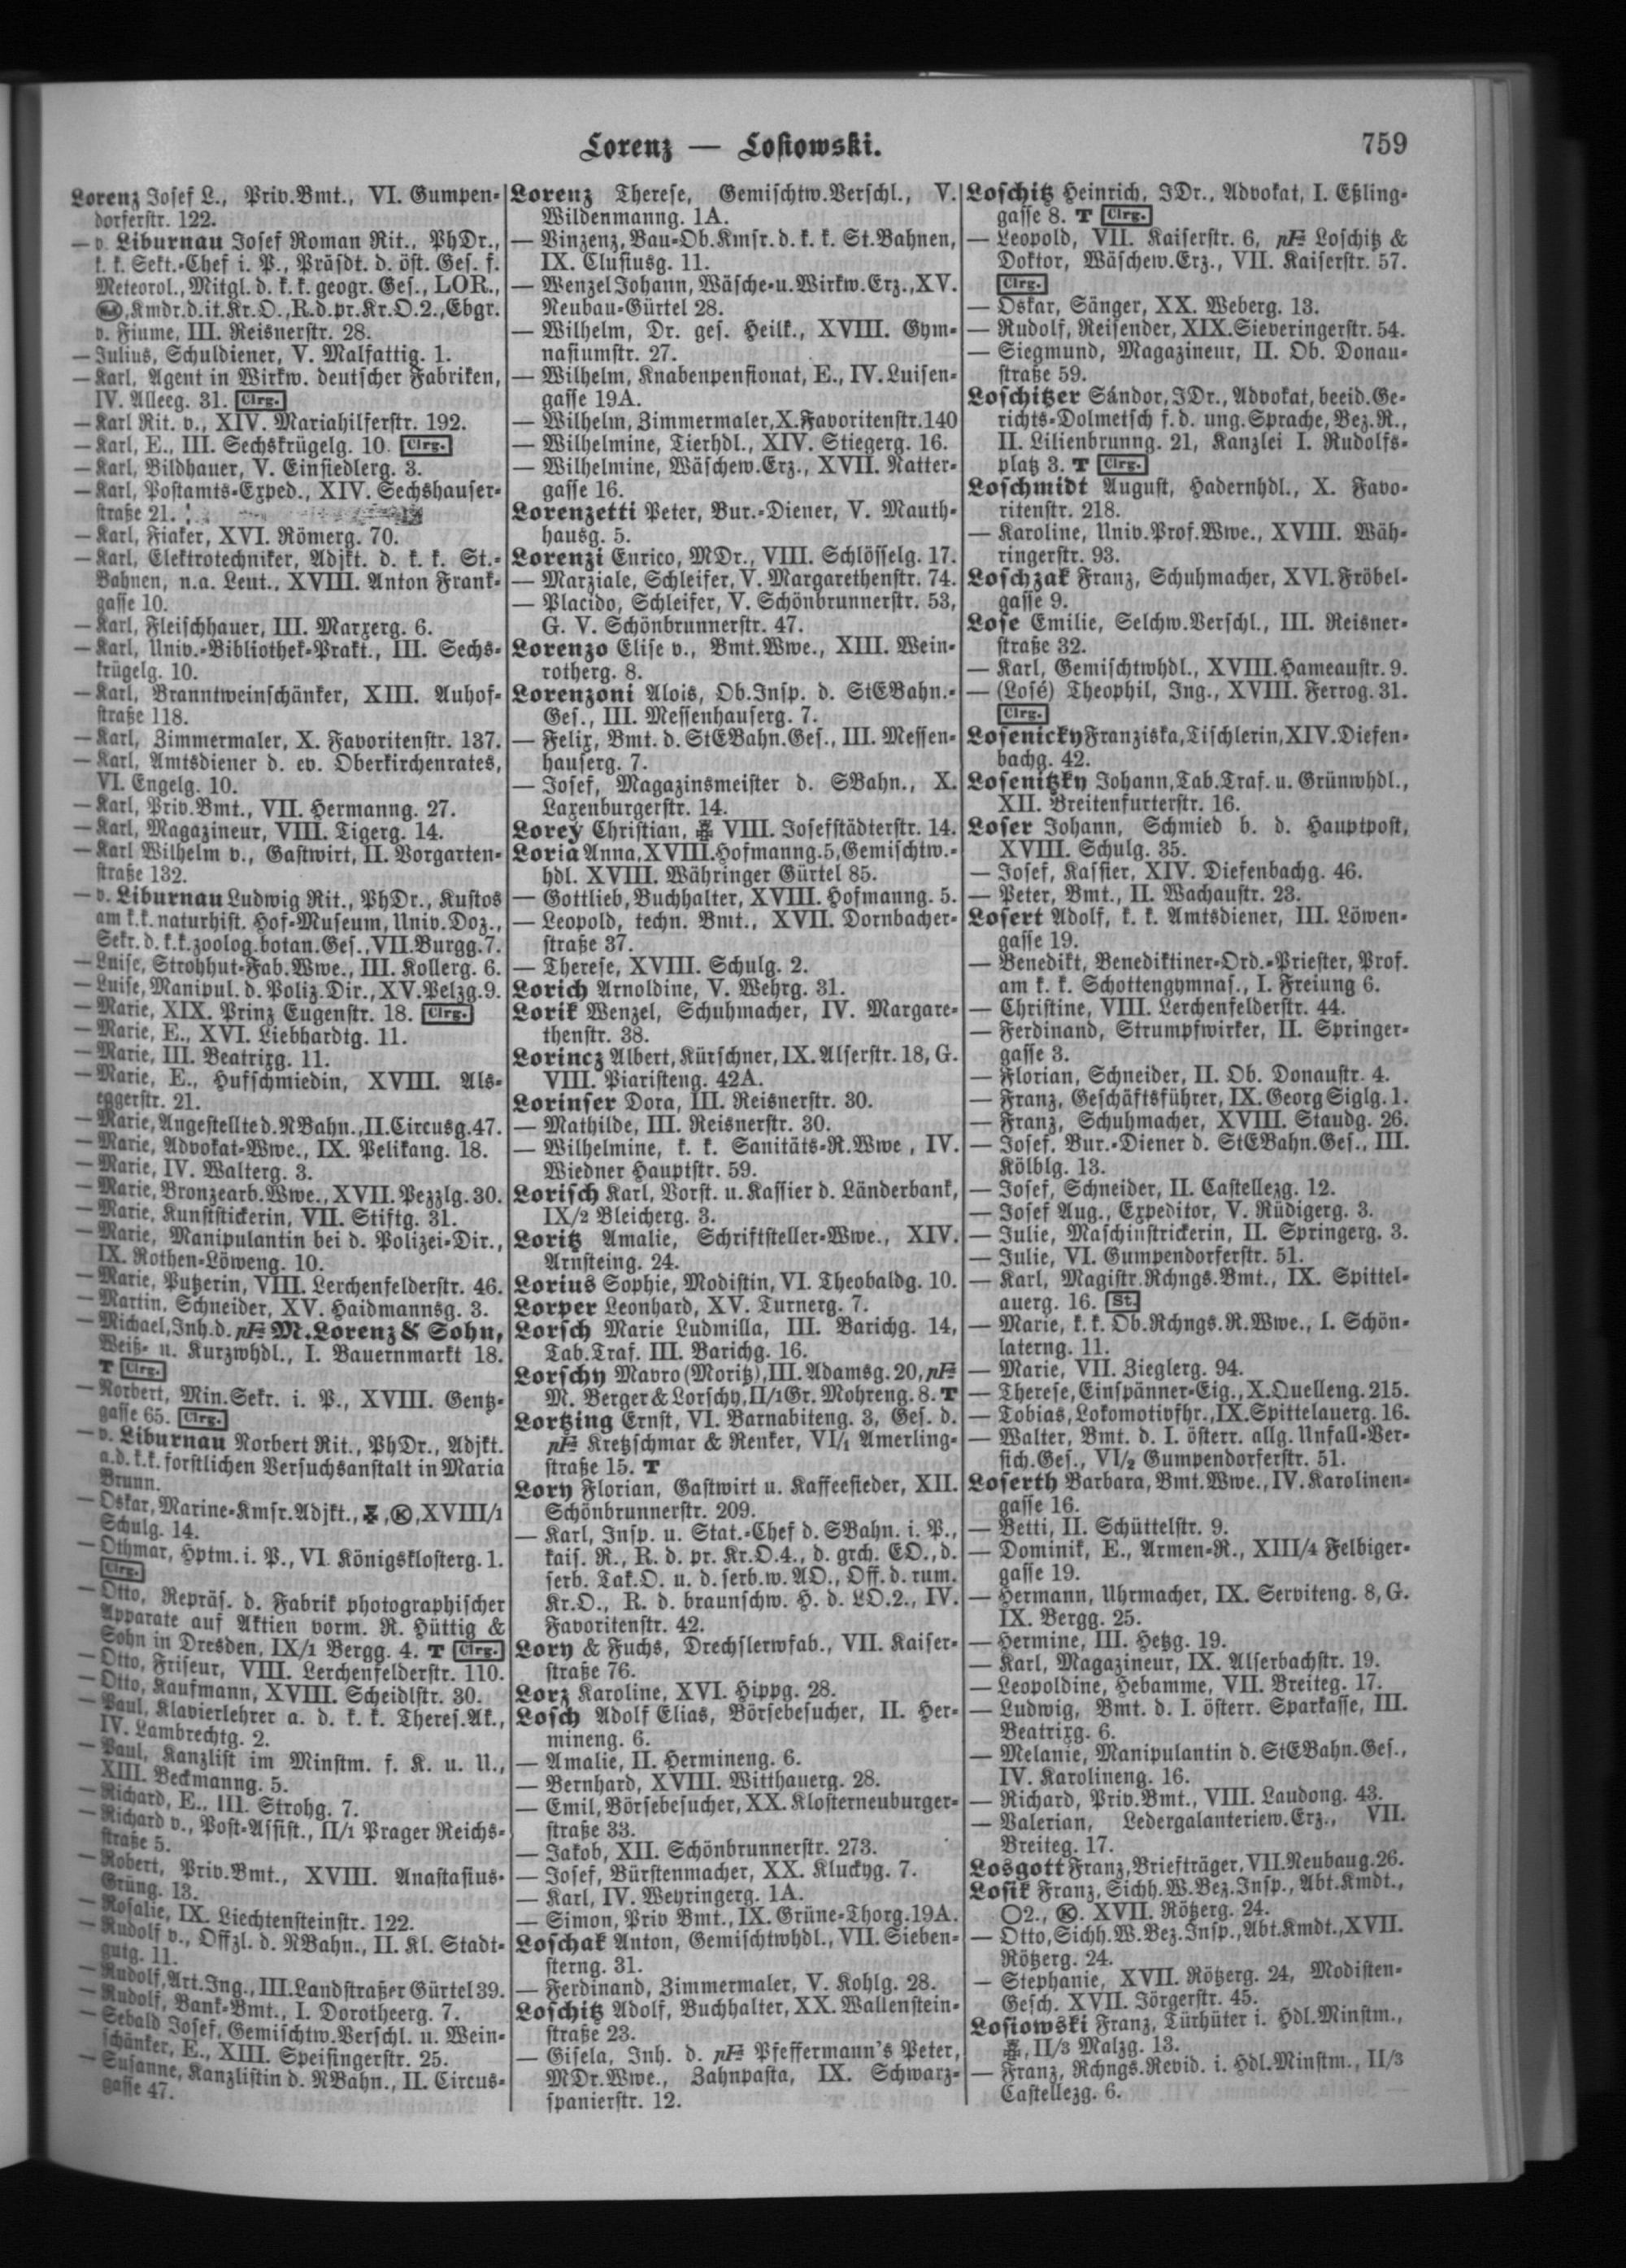 Lorenz — Losiowski.
759
Lorenz Josef L., Priv.Bmt., VI. Gumpen-
dorferstr. 122.
— v. Liburnau Josef Roman Rit., PhDr.,
k. k. Sekt.-Chef i. P., Präsdt. d. öst. Ges. f.
Meteorol., Mitgl. d. k. k. geogr. Ges., LOR.,
Kmdr.d.it.Kr.O., R.d.pr.Kr.O.2., Ebgr.
v. Fiume, III. Reisnerstr. 28.
— Julius, Schuldiener, V. Malfattig. 1.
— Karl, Agent in Wirkw. deutscher Fabriken,
IV. Alleeg. 31. Clrg.
— Karl Rit. v., XIV. Mariahilferstr. 192.
— Karl, E., III. Sechskrügelg. 10. Clrg.
— Karl, Bildhauer, V. Einsiedlerg. 3.
— Karl, Postamts-Exped., XIV. Sechshauser-
straße 21.
— Karl, Fiaker, XVI. Römerg. 70.
— Karl, Elektrotechniker, Adjkt. d. k. k. St.-
Bahnen, n.a. Leut., XVIII. Anton Frank-
gasse 10.
— Karl, Fleischhauer, III. Marxerg. 6.
— Karl, Univ.-Bibliothek-Prakt., III. Sechs-
krügelg. 10.
— Karl, Branntweinschänker, XIII. Auhof-
straße 118.
— Karl, Zimmermaler, X. Favoritenstr. 137.
— Karl, Amtsdiener d. ev. Oberkirchenrates,
VI. Engelg. 10.
— Karl, Priv.Bmt., VII. Hermanng. 27.
— Karl, Magazineur, VIII. Tigerg. 14.
— Karl Wilhelm v., Gastwirt, II. Vorgarten-
straße 132.
— v. Liburnau Ludwig Rit., PhDr., Kustos
am k.k. naturhist. Hof-Museum, Univ.Doz.,
Sekr. d. k.k. zoolog. botan. Ges., VII. Burgg. 7.
— Luise, Strohhut-Fab.Wwe., III. Kollerg. 6.
— Luise, Manipul. d. Poliz.Dir., XV. Pelzg. 9.
— Marie, XIX. Prinz Eugenstr. 18. Clrg.
— Marie, E., XVI. Liebhardtg. 11.
— Marie, III. Beatrixg. 11.
— Marie, E., Hufschmiedin, XVIII. Als-
eggerstr. 21.
— Marie, Angestellte d. NBahn., II. Circusg. 47.
— Marie, Advokat-Wwe., IX. Pelikang. 18.
— Marie, IV. Walterg. 3.
— Marie, Bronzearb.Wwe., XVII. Pezzlg. 30.
— Marie, Kunststickerin, VII. Stiftg. 31.
— Marie, Manipulantin bei d. Polizei-Dir.,
IX. Rothen-Löweng. 10.
— Marie, Putzerin, VIII. Lerchenfelderstr. 46.
— Martin, Schneider, XV. Haidmannsg. 3.
— Michael, Inh. d. pF M. Lorenz & Sohn,
Weiß- u. Kurzwhdl., I. Bauernmarkt 18.
T Clrg.
— Norbert, Min.Sekr. i. P., XVIII. Gentz-
gasse 65. Clrg.
— v. Liburnau Norbert Rit., PhDr., Adjkt.
a.d. k.k. forstlichen Versuchsanstalt in Maria
Brunn.
— Oskar, Marine-Kmsr.Adjkt., K, XVIII/1
Schulg. 14.
— Othmar, Hptm. i. P., VI. Königsklosterg. 1.
Clrg.
— Otto, Repräs. d. Fabrik photographischer
Apparate auf Aktien vorm. R. Hüttig &
Sohn in Dresden, IX/1 Bergg. 4. T Clrg.
— Otto, Friseur, VIII. Lerchenfelderstr. 110.
— Otto, Kaufmann, XVIII. Scheidlstr. 30.
— Paul, Klavierlehrer a. d. k. k. Theres.Ak.,
IV. Lambrechtg. 2.
— Paul, Kanzlist im Minstm. f. K. u. U.,
XIII. Beckmanng. 5.
— Richard, E., III. Strohg. 7.
— Richard v., Post-Assist., II/1 Prager Reichs-
straße 5.
— Robert, Priv.Bmt., XVIII. Anastasius-
Grüng. 13.
— Rosalie, IX. Liechtensteinstr. 122.
— Rudolf v., Offzl. d. NBahn., II. Kl. Stadt-
gutg. 11.
— Rudolf, Art.Ing., III. Landstraßer Gürtel 39.
— Rudolf, Bank-Bmt., I. Dorotheerg. 7.
— Sebald Josef, Gemischtw.Verschl. u. Wein-
schänker, E., XIII. Speisingerstr. 25.
— Susanne, Kanzlistin d. NBahn., II. Circus-
gasse 47.
Lorenz Therese, Gemischtw.Verschl., V.
Wildenmanng. 1A.
— Vinzenz, Bau-Ob.Kmsr. d. k. k. St.Bahnen,
IX. Clusiusg. 11.
— Wenzel Johann, Wäsche- u. Wirkw.Erz., XV.
Neubau-Gürtel 28.
— Wilhelm, Dr. ges. Heilk., XVIII. Gym-
nasiumstr. 27.
— Wilhelm, Knabenpensionat, E., IV. Luisen-
gasse 19A.
— Wilhelm, Zimmermaler, X. Favoritenstr. 140
— Wilhelmine, Tierhdl., XIV. Stiegerg. 16.
— Wilhelmine, Wäschew.Erz., XVII. Natter-
gasse 16.
Lorenzetti Peter, Bur.-Diener, V. Mauth-
hausg. 5.
Lorenzi Enrico, MDr., VIII. Schlösselg. 17.
— Marziale, Schleifer, V. Margarethenstr. 74.
— Placido, Schleifer, V. Schönbrunnerstr. 53,
G. V. Schönbrunnerstr. 47.
Lorenzo Elise v., Bmt.Wwe., XIII. Wein-
rotherg. 8.
Lorenzoni Alois, Ob.Insp. d. StEBahn.-
Ges., III. Messenhauserg. 7.
— Felix, Bmt. d. StEBahn.Ges., III. Messen-
hauserg. 7.
— Josef, Magazinsmeister d. SBahn., X.
Laxenburgerstr. 14.
Lorey Christian, VIII. Josefstädterstr. 14.
Loria Anna, XVIII. Hofmanng. 5, Gemischtw.-
hdl. XVIII. Währinger Gürtel 85.
— Gottlieb, Buchhalter, XVIII. Hofmanng. 5.
— Leopold, techn. Bmt., XVII. Dornbacher-
straße 37.
— Therese, XVIII. Schulg. 2.
Lorich Arnoldine, V. Wehrg. 31.
Lorik Wenzel, Schuhmacher, IV. Margare-
thenstr. 38.
Lorincz Albert, Kürschner, IX. Alserstr. 18, G.
VIII. Piaristeng. 42A.
Lorinser Dora, III. Reisnerstr. 30.
— Mathilde, III. Reisnerstr. 30.
— Wilhelmine, k. k. Sanitäts-R.Wwe, IV.
Wiedner Hauptstr. 59.
Lorisch Karl, Vorst. u. Kassier d. Länderbank,
IX/2 Bleicherg. 3.
Loritz Amalie, Schriftsteller-Wwe., XIV.
Arnsteing. 24.
Lorius Sophie, Modistin, VI. Theobaldg. 10.
Lorper Leonhard, XV. Turnerg. 7.
Lorsch Marie Ludmilla, III. Barichg. 14,
Tab.Traf. III. Barichg. 16.
Lorschy Mavro (Moritz), III. Adamsg. 20, pF
M. Berger & Lorschy, II/1 Gr. Mohreng. 8. T
Lortzing Ernst, VI. Barnabiteng. 3, Ges. d.
pF Kretzschmar & Renker, VI/1 Amerling-
straße 15. T
Lory Florian, Gastwirt u. Kaffeesieder, XII.
Schönbrunnerstr. 209.
— Karl, Insp. u. Stat.-Chef d. SBahn. i. P.,
kais. R., R. d. pr. Kr.O.4., d. grch. EO., d.
serb. Tak.O. u. d. serb. w. AO., Off. d. rum.
Kr.O., R. d. braunschw. H. d. LO.2., IV.
Favoritenstr. 42.
Lory & Fuchs, Drechslerwfab., VII. Kaiser-
straße 76.
Lorz Karoline, XVI. Hippg. 28.
Losch Adolf Elias, Börsebesucher, II. Her-
mineng. 6.
— Amalie, II. Hermineng. 6.
— Bernhard, XVIII. Witthauerg. 28.
— Emil, Börsebesucher, XX. Klosterneuburger-
straße 33.
— Jakob, XII. Schönbrunnerstr. 273.
— Josef, Bürstenmacher, XX. Kluckyg. 7.
— Karl, IV. Weyringerg. 1A.
— Simon, Priv Bmt., IX. Grüne-Thorg. 19A.
Loschak Anton, Gemischtwhdl., VII. Sieben-
sterng. 31.
— Ferdinand, Zimmermaler, V. Kohlg. 28.
Loschitz Adolf, Buchhalter, XX. Wallenstein-
straße 23.
— Gisela, Inh. d. pF Pfeffermann's Peter,
MDr.Wwe., Zahnpasta, IX. Schwarz-
spanierstr. 12.
Loschitz Heinrich, JDr., Advokat, I. Eßling-
gasse 8. T Clrg.
— Leopold, VII. Kaiserstr. 6, pF Loschitz &
Doktor, Wäschew.Erz., VII. Kaiserstr. 57.
Clrg.
— Oskar, Sänger, XX. Weberg. 13.
— Rudolf, Reisender, XIX. Sieveringerstr. 54.
— Siegmund, Magazineur, II. Ob. Donau-
straße 59.
Loschitzer Sándor, JDr., Advokat, beeid. Ge-
richts-Dolmetsch f. d. ung. Sprache, Bez.R.,
II. Lilienbrunng. 21, Kanzlei I. Rudolfs-
platz 3. T Clrg.
Loschmidt August, Hadernhdl., X. Favo-
ritenstr. 218.
— Karoline, Univ.Prof.Wwe., XVIII. Wäh-
ringerstr. 93.
Loschzak Franz, Schuhmacher, XVI. Fröbel-
gasse 9.
Lose Emilie, Selchw.Verschl., III. Reisner-
straße 32.
— Karl, Gemischtwhdl., XVIII. Hameaustr. 9.
— (Losé) Theophil, Ing., XVIII. Ferrog. 31.
Clrg.
Losenicky Franziska, Tischlerin, XIV. Diefen-
bachg. 42.
Losenitzky Johann, Tab.Traf. u. Grünwhdl.,
XII. Breitenfurterstr. 16.
Loser Johann, Schmied b. d. Hauptpost,
XVIII. Schulg. 35.
— Josef, Kassier, XIV. Diefenbachg. 46.
— Peter, Bmt., II. Wachaustr. 23.
Losert Adolf, k. k. Amtsdiener, III. Löwen-
gasse 19.
— Benedikt, Benediktiner-Ord.-Priester, Prof.
am k. k. Schottengymnas., I. Freiung 6.
— Christine, VIII. Lerchenfelderstr. 44.
— Ferdinand, Strumpfwirker, II. Springer-
gasse 3.
— Florian, Schneider, II. Ob. Donaustr. 4.
— Franz, Geschäftsführer, IX. Georg Siglg. 1.
— Franz, Schuhmacher, XVIII. Staudg. 26.
— Josef, Bur.-Diener d. StEBahn.Ges., III.
Kölblg. 13.
— Josef, Schneider, II. Castellezg. 12.
— Josef Aug., Expeditor, V. Rüdigerg. 3.
— Julie, Maschinstrickerin, II. Springerg. 3.
— Julie, VI. Gumpendorferstr. 51.
— Karl, Magistr.Rchngs.Bmt., IX. Spittel-
auerg. 16. St.
— Marie, k. k. Ob.Rchngs.R.Wwe., I. Schön-
laterng. 11.
— Marie, VII. Zieglerg. 94.
— Therese, Einspänner-Eig., X. Quelleng. 215.
— Tobias, Lokomotivfhr., IX. Spittelauerg. 16.
— Walter, Bmt. d. I. österr. allg. Unfall-Ver-
sich.Ges., VI/2 Gumpendorferstr. 51.
Loserth Barbara, Bmt.Wwe., IV. Karolinen-
gasse 16.
— Betti, II. Schüttelstr. 9.
— Dominik, E., Armen-R., XIII/4 Felbiger-
gasse 19.
— Hermann, Uhrmacher, IX. Serviteng. 8, G.
IX. Bergg. 25.
— Hermine, III. Hetzg. 19.
— Karl, Magazineur, IX. Alserbachstr. 19.
— Leopoldine, Hebamme, VII. Breiteg. 17.
— Ludwig, Bmt. d. I. österr. Sparkasse, III.
Beatrixg. 6.
— Melanie, Manipulantin d. StEBahn.Ges.,
IV. Karolineng. 16.
— Richard, Priv.Bmt., VIII. Laudong. 43.
— Valerian, Ledergalanteriew.Erz., VII.
Breiteg. 17.
Losgott Franz, Briefträger, VII. Neubaug. 26.
Losik Franz, Sichh.W.Bez.Insp., Abt.Kmdt.,
O2., K. XVII. Rötzerg. 24.
— Otto, Sichh.W.Bez.Insp., Abt.Kmdt., XVII.
Rötzerg. 24.
— Stephanie, XVII. Rötzerg. 24, Modisten-
Gesch. XVII. Jörgerstr. 45.
Losiowski Franz, Türhüter i. Hdl.Minstm.,
II/3 Malzg. 13.
— Franz, Rchngs.Revid. i. Hdl.Minstm., II/3
Castellezg. 6.